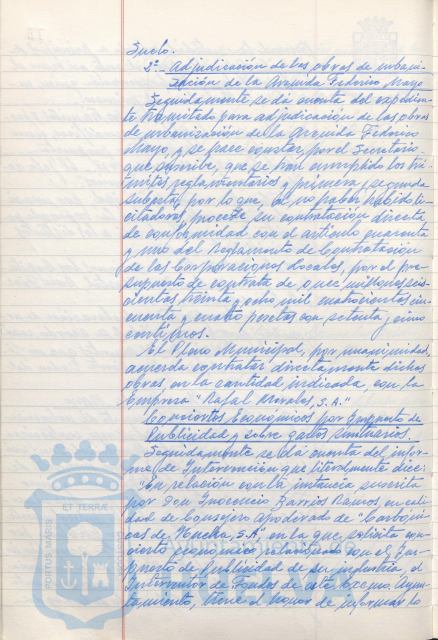 Suelo.
2º.- Adjudicación de las obras de urbani-
zación de la Avenida Federico Mayo
Seguidamente se dá cuenta del expedien-
te tramitado para adjudicación de las obras
de urbanización de la Avenida Federico
Mayo, y se hace constar por el Secretario
que suscribe, que se han cumplido los trá-
mites reglamentarios y primera y segunda
subasta, por lo que, al no haber habido li-
citadores, procede su contratación directa
de conformidad con el artículo cuarenta
y uno del Reglamento de Contratación
de las Corporaciones Locales, por el pre-
supuesto de contrata de once millones seis-
cientas treinta y ocho mil cuatrocientas cin-
cuenta y cuatro pesetas con setenta y cinco
céntimos.
El Pleno Municipal, por unanimidad,
acuerda contratar directamente dichas
obras en la cantidad indicada, con la
Empresa "Rafael Morales, S.A."
Conciertos Económicos por Impuesto de
Publicidad y sobre gastos suntuarios.
Seguidamente se dá cuenta del infor-
me de Intervención que literalmente dice:
"En relación con la instancia suscrita
por Don Inocencio Barrios Ramos, en cali-
dad de Consejero Apoderado de "Carbóni-
cas de Huelva, S.A." en la que solicita con-
cierto económico relacionado con el Im-
puesto de Publicidad de su industria, el
Interventor de Fondos de este Excmo. Ayun-
tamiento, tiene el honor de informar lo
PORTUS MARIS ET TERRÆ